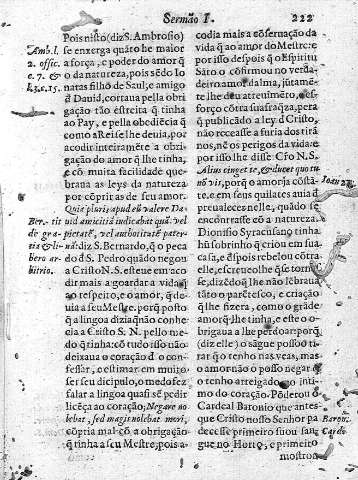 Sermão I.
222
Pois nisto (diz S. Ambrosio)
se enxerga quãto he maior
a força, e poder do amor q̃
o da natureza, pois sẽdo Io
natas filho de Saul, e amigo
đ Dauid, cortaua pela obri
gação tão estreita q̃ tinha
ao Pay, e pela obediẽcia q̃
como a Rei se lhe deuia, por
acodir inteiramẽte a obri-
gação do amor q̃ lhe tinha,
e cõ muita facilidade que
braua as leys da natureza
por cõprir as de seu amor.
Quie pluris apud eũ valere Da
uid amicitiã iudicabat quã vel
pietatẽ, vel authoritatẽ pater-
nã: diz S. Bernardo, q̃ o peca
do đ S. Pedro quãdo negou
a Cristo N. S. esteue em aco
dir mais a goardar a vida
ao respeito, e o amor, q̃ de-
uia a seu Mestre. porq̃ posto
q̃ a lingoa dizia q̃ não conhe
cia a Cristo S. N. pello me-
do q̃ tinha: cõ tudo isso não
deixaua o coração đ o con-
fessar, e estimar em muito
ser seu dicipulo, o medo fez
falar a lingoa quasi sẽ pedir
licẽça ao coração; Negare no
lebat, sed magis nolebat mori,
cõprio mal cõ a obrigação
q̃ tinha a seu Mestre, pois a-
Amb. l.
2. offic.
c. 7. &
l. 3. c. 15.
Ber. tit
de gra-
tia & li-
bero ar-
bitrio.
codia mais a cõseruação da
vida q̃ ao amor do Mestre: e
por isso despois q̃ o Espiritu
Sãto o cõfirmou no verda-
deiro amor dalma, jũtamẽ-
te lhe deu atreuimẽto, e es-
forço cõtra sua fraq̃za, pera
q̃ publicãdo a ley đ Cristo,
não recease a furia dos tirã
nos, nẽ os perigos da vida: e
por isso lhe disse Cĩo N. S.
Alius cinget te, & ducet quo tu
nõ vis, por q̃ o amor ja cõsta-
te, e em seus quilates auia đ
preualecer nelle, quando se
encontrase cõ a natureza.
Dionisio Syracusano tinha
hũ sobrinho q̃ criou em sua
casa, e đ spois rebelou cõtra
elle, escreuolhe q̃ se tornas-
se, dizẽdo q̃ lhe não lẽbraua
tãto o parẽtesco, e criação
q̃ lhe fizera, como o grãde
amor q̃ lhe tinha, e este o o-
brigaua a lhe perdoar: porq̃
(diz elle) o sãgue posso ti
rar q̃ tenho nas veas, mas
o amor não o posso negar q̃
o tenho arreigado no inti-
mo do coração. Põderou o
Cardeal Baronio que antes
que Cristo nosso Senhor pa
decesse primeiro suou san-
gue no Horto, e primeiro
mostrou
Ioan 21.
Baron.
Cardi.